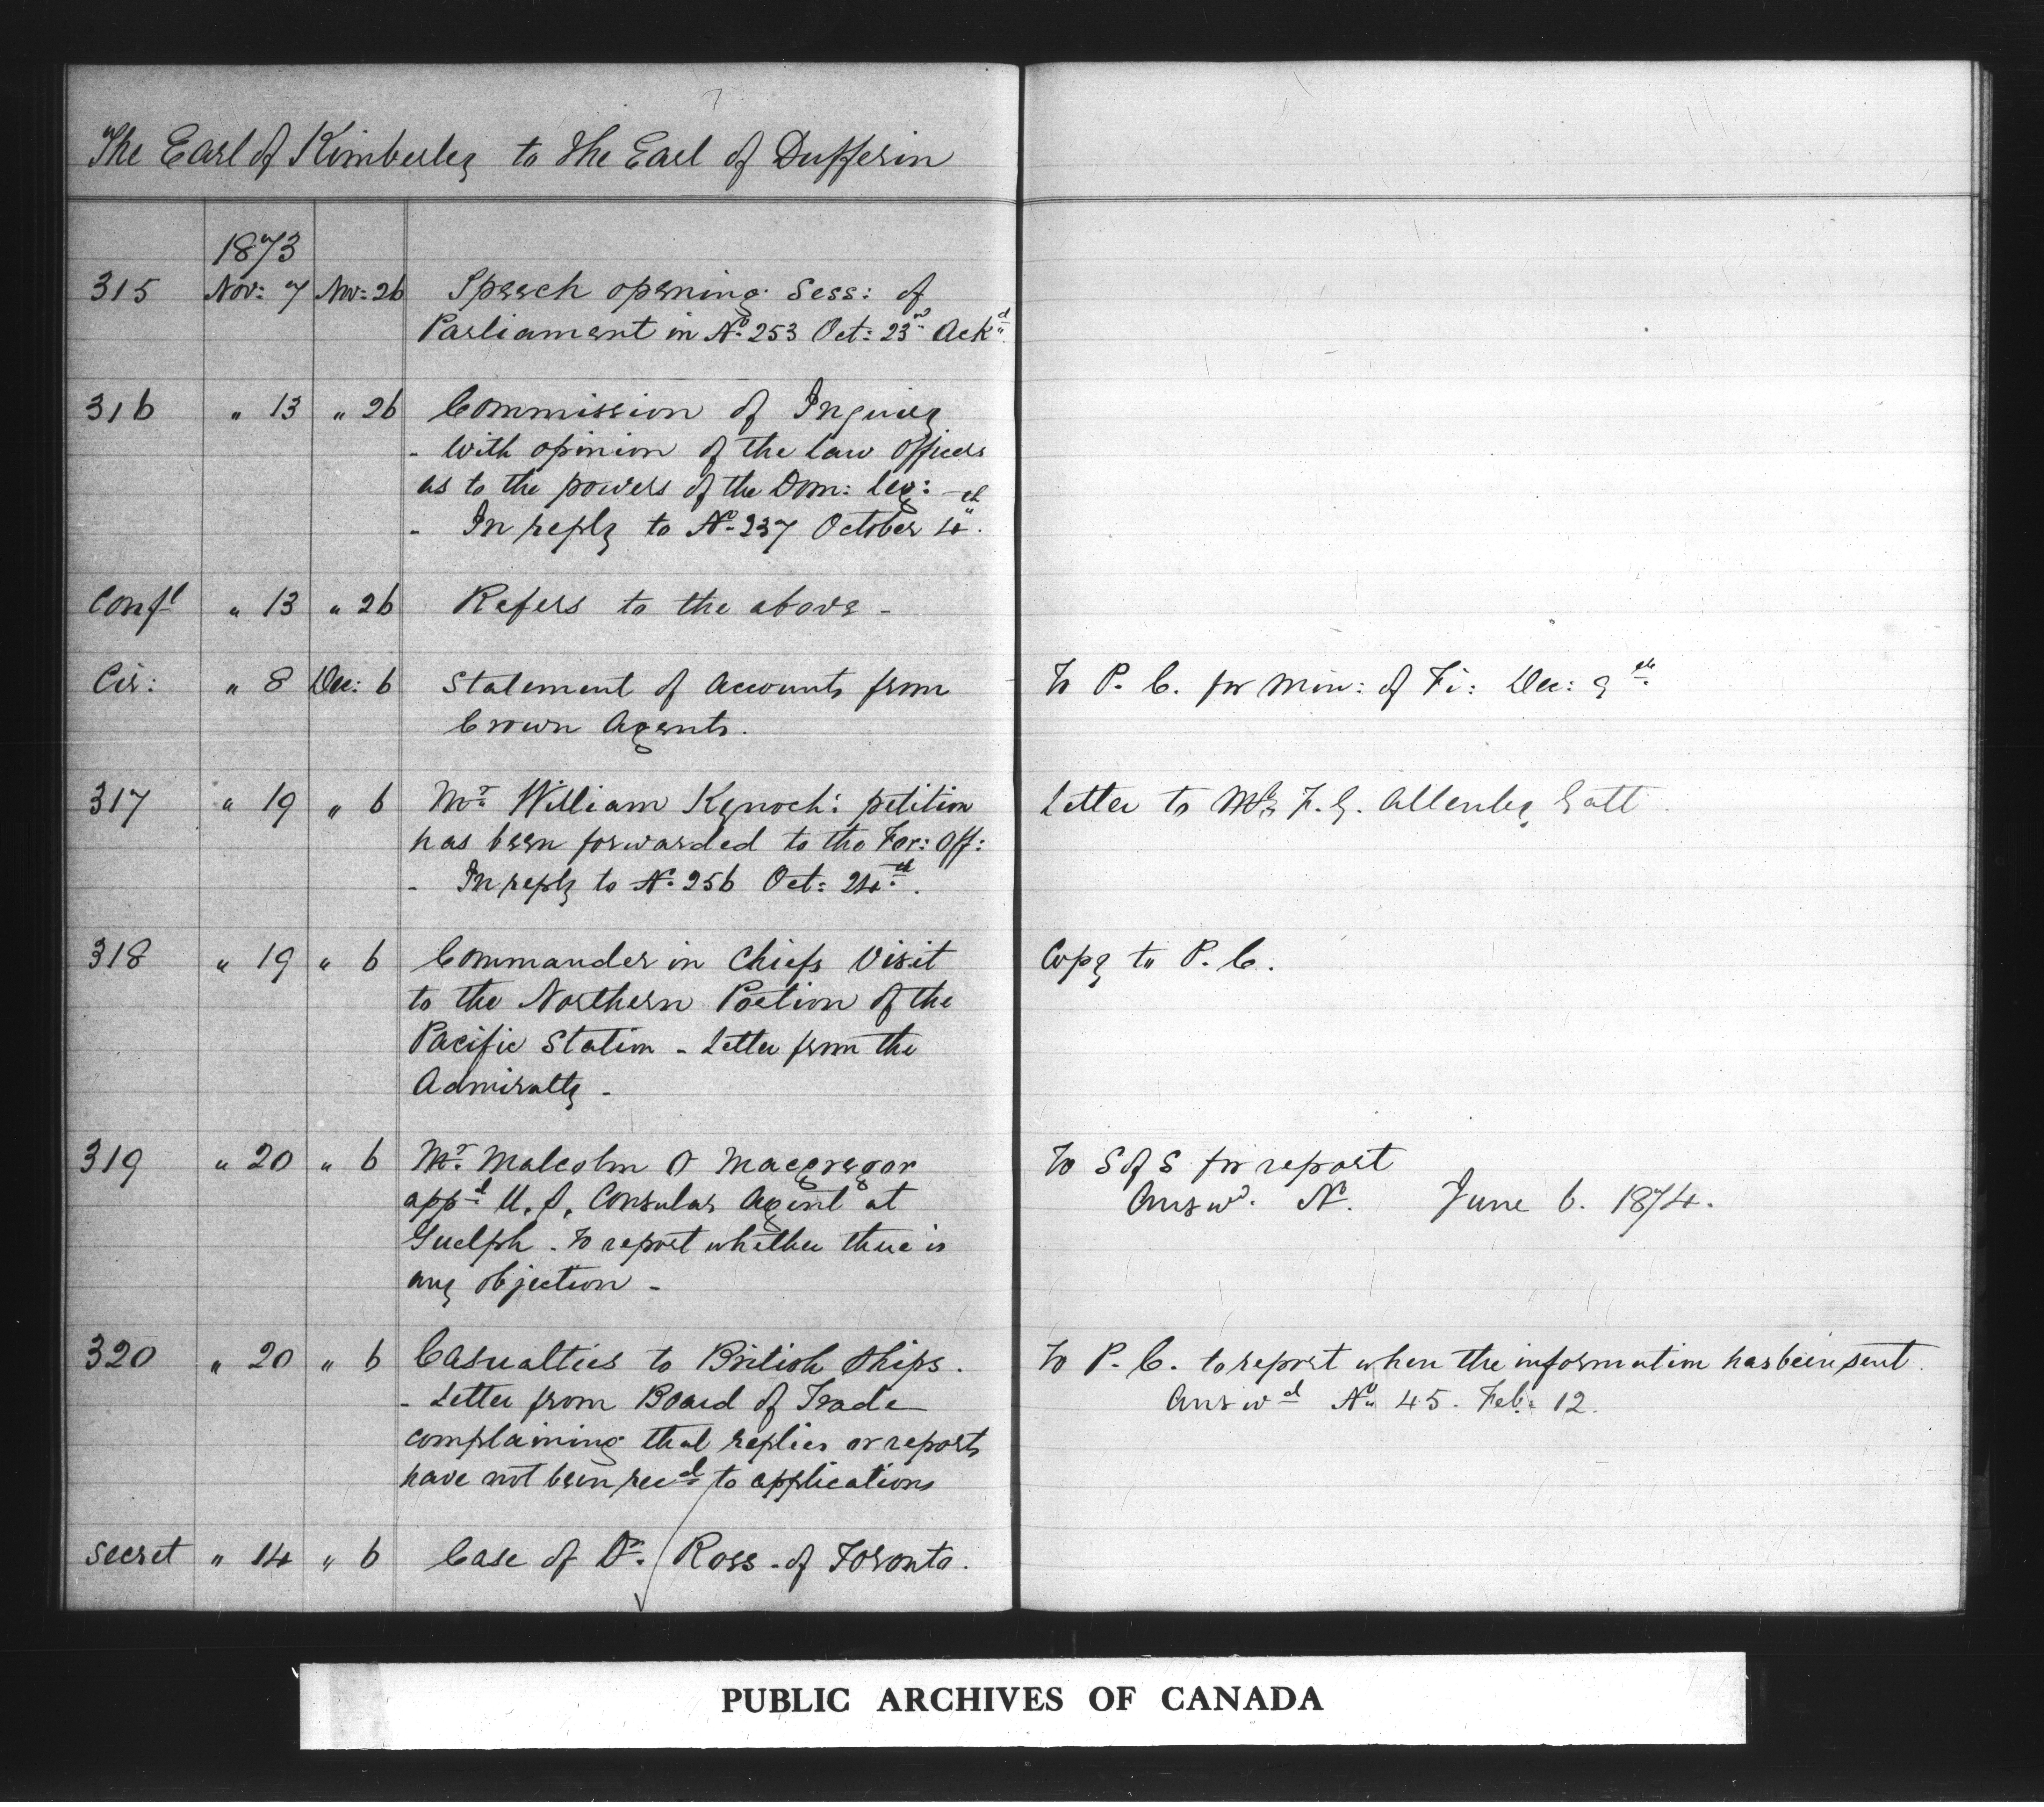 The Earl of Kimberley to The Earl of Dufferin
1873
315 Nov: 7 Nov: 26 Speech opening Sess: of
Parliament in No. 253 Oct: 23rd Ackd.
316 " 13 " 26 Commission of Inquiry
- With opinion of the Law Officers
as to the powers of the Dom: Leg: -
- In reply to No. 237 October 4th.
Confl " 13 " 26 Refers to the above -
Cir: " 8 Dec: 6 Statement of Accounts from To P. C. for Min: of Fi: Dec: 9th.
Crown Agents.
317 " 19 " 6 Mr. William Kynoch: petition Letter to F. G. Allenby Galt
has been forwarded to the For: Off:
- In reply to No. 256 Oct: 24th.
318 " 19 " 6 Commander in Chiefs Visit Copy to P. C.
to the Northern Portion of the
Pacific Station - Letter from the
Admiralty -
319 " 20 " 6 Mr. Malcolm O Macgregor To S of S for report
appd U. S. Consular Agent at Answd. No. June 6. 1874.
Guelph - To report whether there is
any objection -
320 " 20 " 6 Casualties to British Ships. To P. C. to report when the information has been sent.
- Letter from Board of Trade Answd No. 45. Feb: 12.
complaining that replies or reports
have not been recd to applications
Secret " 14 " 6 Case of Dr. Ross - of Toronto.
PUBLIC ARCHIVES OF CANADA